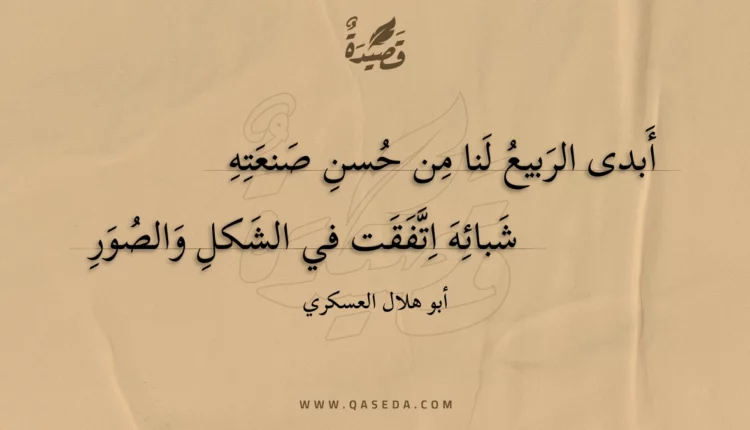 قَصِيْدَةٌ
أَبدى الرَبيعُ لَنا مِن حُسنِ صَنعَتِهِ
شَبائِهَ اِتَّفَقَت في الشَكلِ وَالصُوَرِ
أبو هلال العسكري
WWW.QASEDA.COM